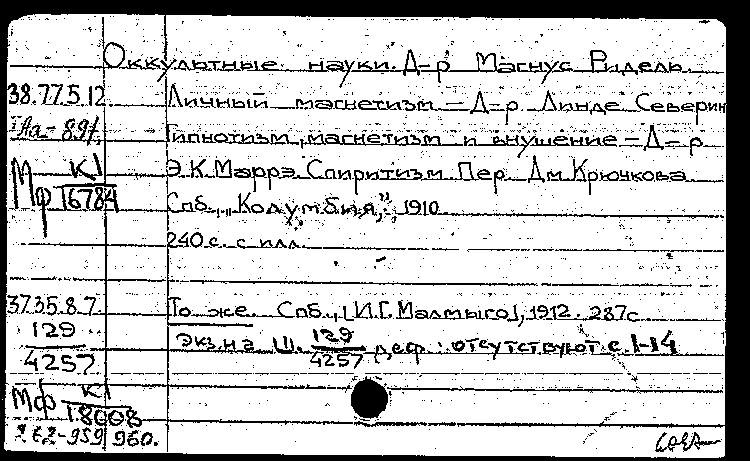 Оккультные науки. Д-р Магнус Ридель.
38.77.5.12. Личный магнетизм – Д-р Линде Северин
Гипнотизм, магнетизм и внушение – Д-р
Мф К1/16784 Э.К.Маррэ. Спиритизм. Пер. Дм. Крючкова.
Спб., „Колумбия", 1910.
240 с. с илл.
37.35.8.7. То же. Спб., [И.Г. Малмыго], 1912. 287с.
129/4257 Экз. на Ш. 129/4257 деф.: отсутствуют с. 1-14
Мф К1/18008
262-959 960.